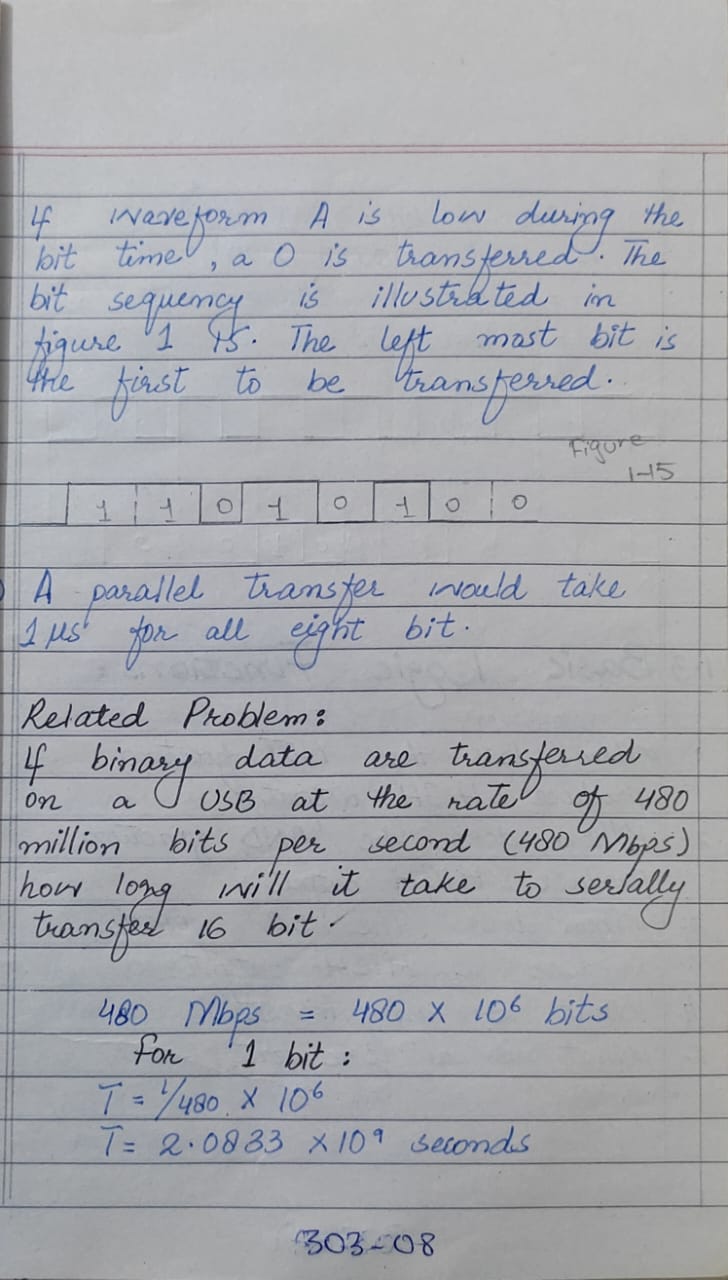 If waveform A is low during the
bit time, a 0 is transferred. The
bit sequency is illustrated in
figure 1 15. The left most bit is
the first to be transferred.
Figure
1-15
1 1 0 1 0 1 0 0
A parallel transfer would take
1 μs for all eight bit.
Related Problem:
If binary data are transferred
on a USB at the rate of 480
million bits per second (480 Mbps)
how long will it take to serially
transfer 16 bit.
480 Mbps = 480 × 10⁶ bits
for 1 bit:
T = 1/480 × 10⁶
T = 2.0833 × 10⁹ seconds
303-08